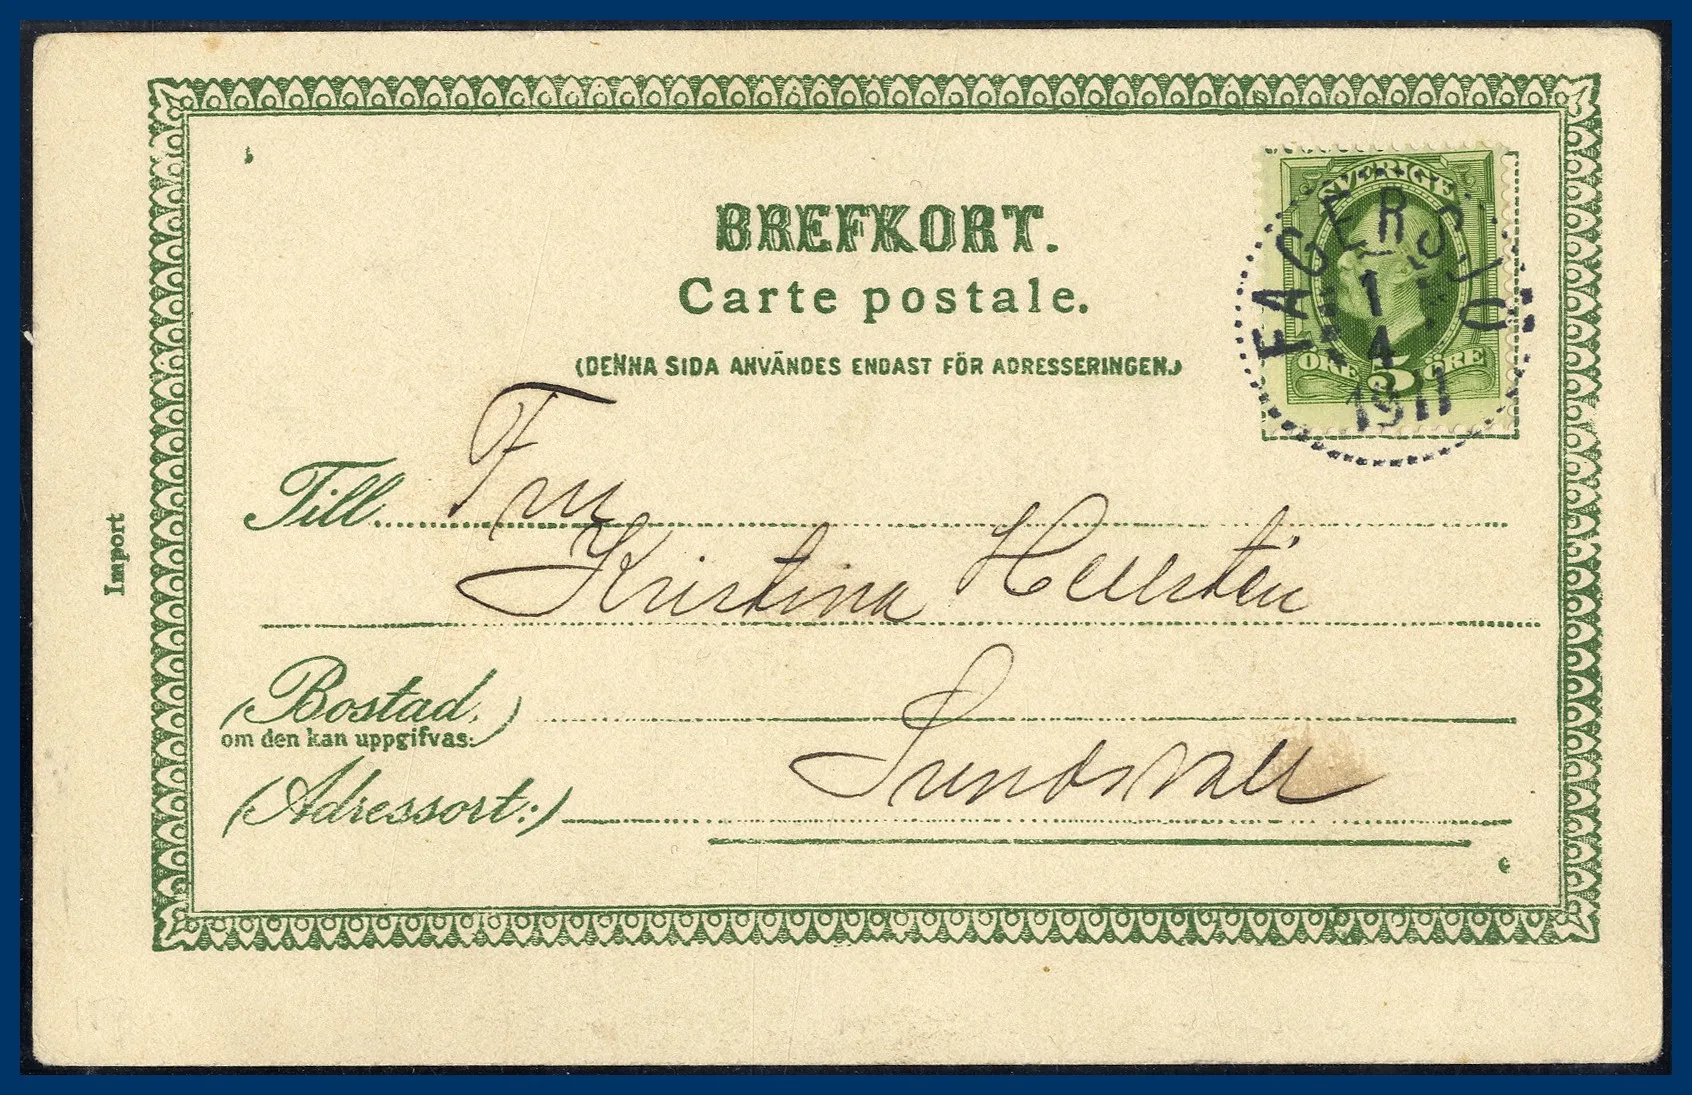 BREFKORT.
Carte postale.
(DENNA SIDA ANVÄNDES ENDAST FÖR ADRESSERINGEN.)
SVERIGE
ÖRE 5 ÖRE
FAGERSJÖ
1
4
1911
Till
Fru
Kristina
(Bostad.)
om den kan uppgifvas.
(Adressort:)
Sundsvall
Import